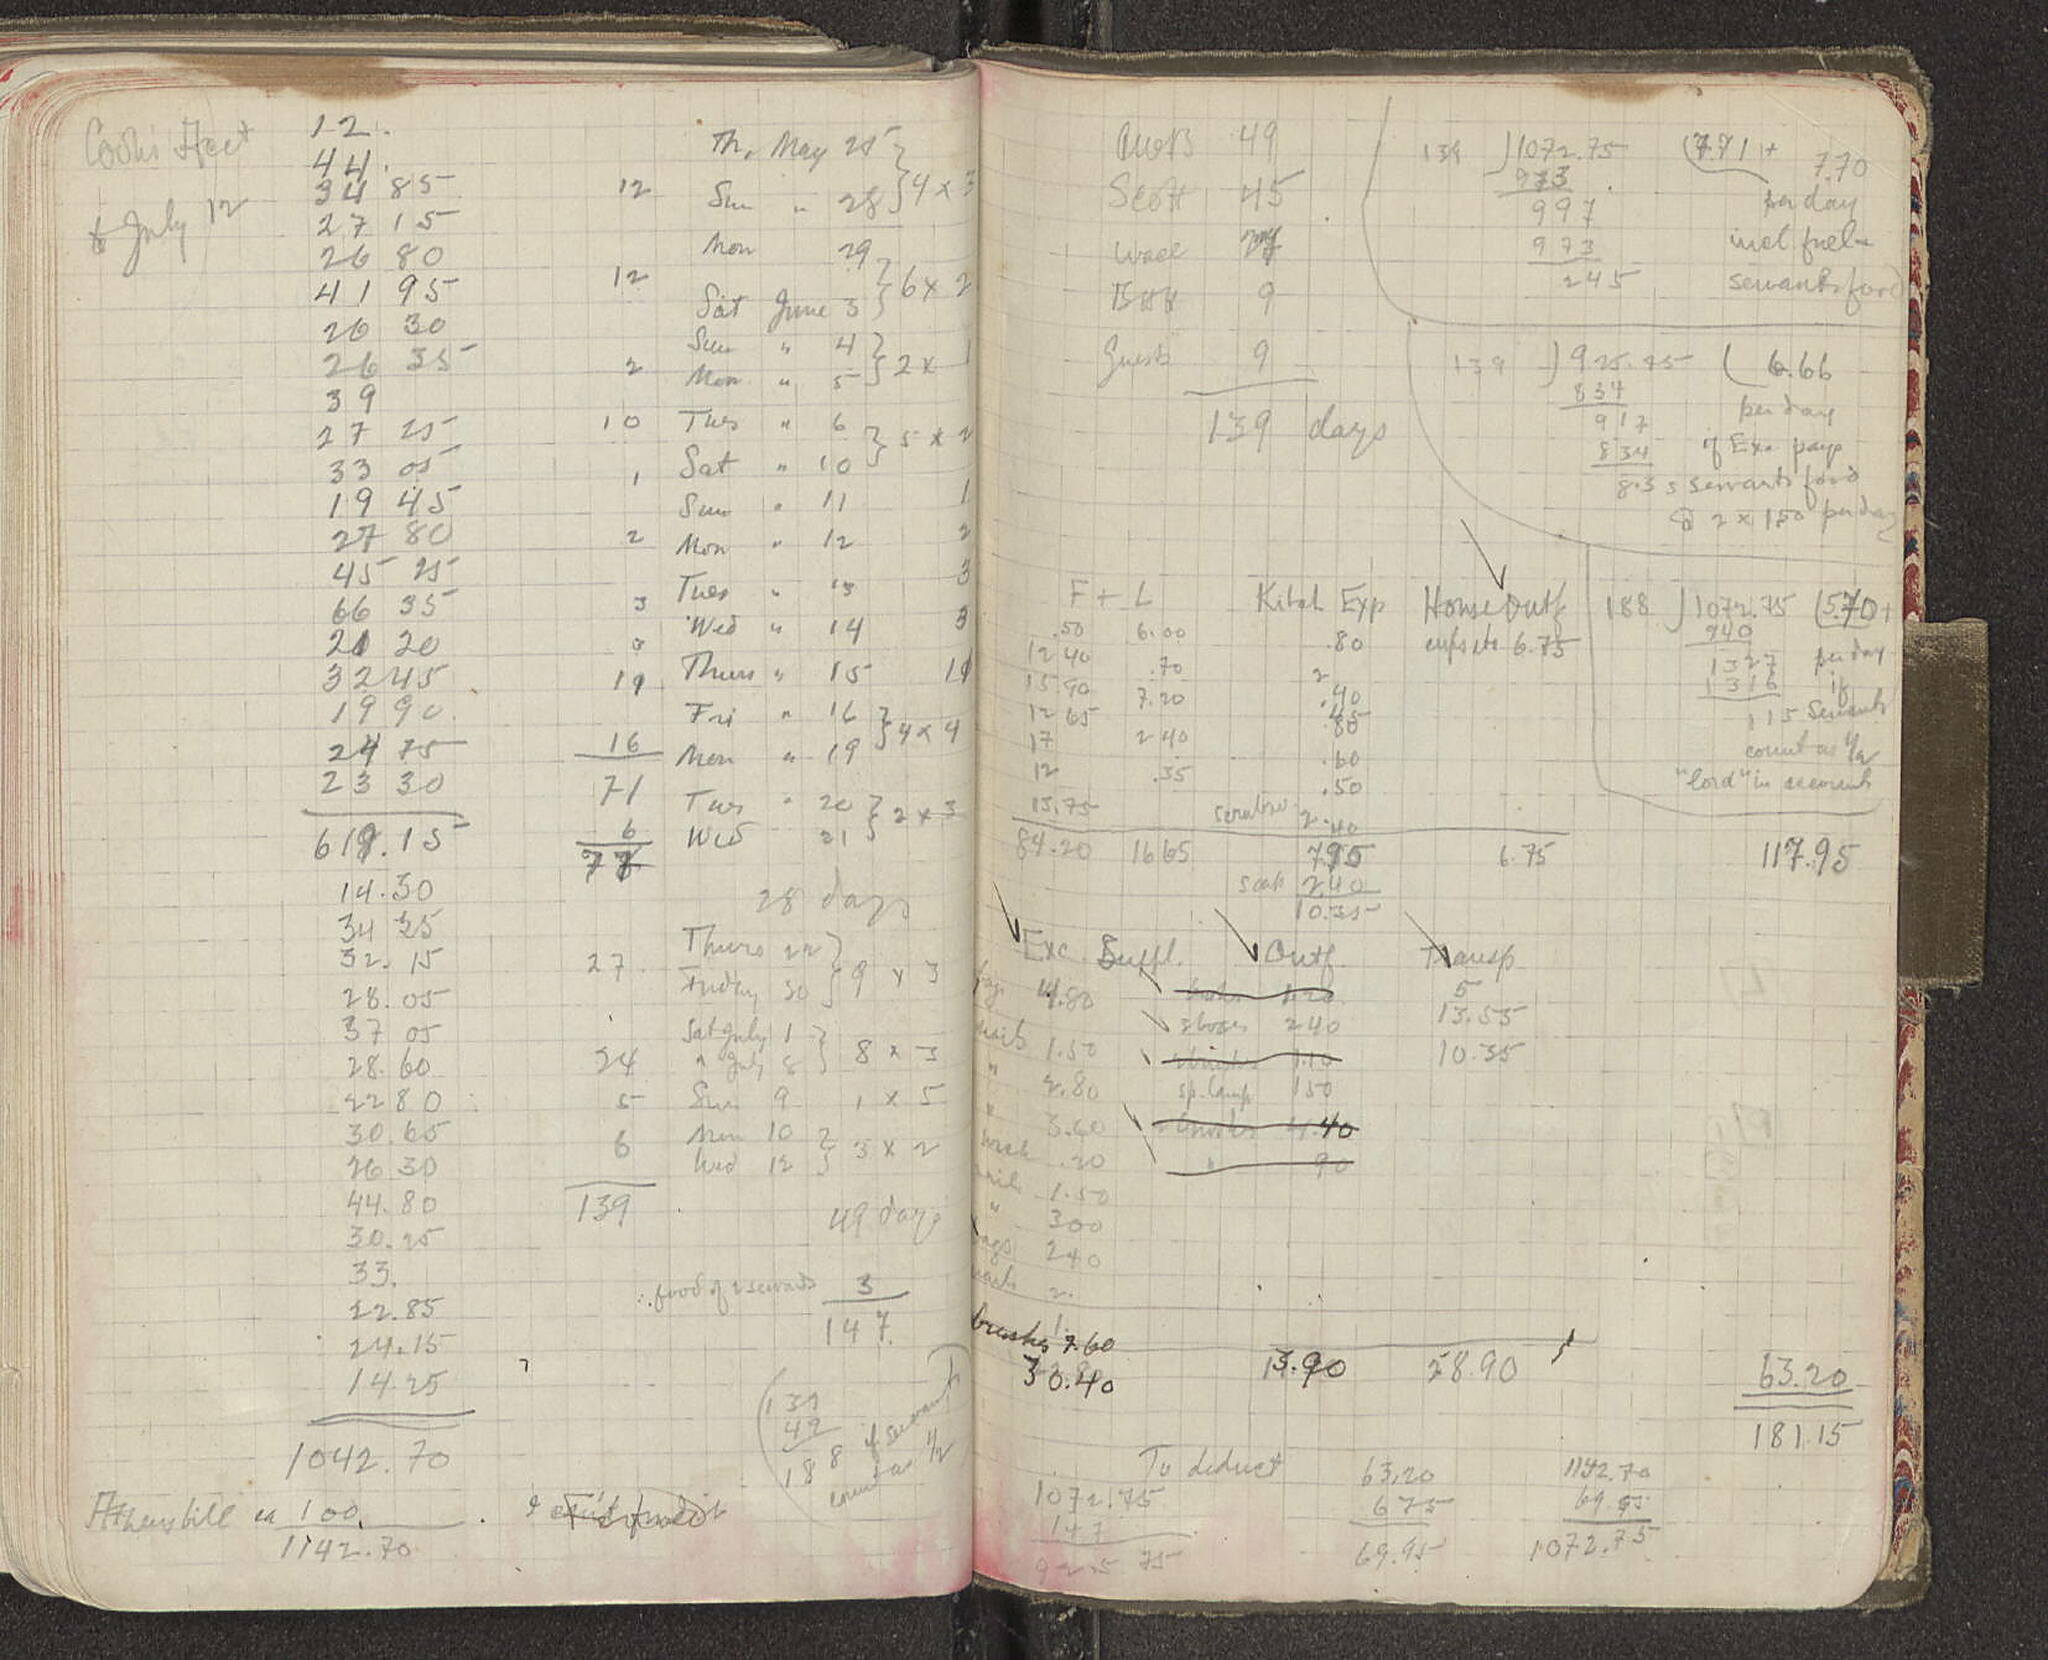 Cook's Acct
to July 12
12.
44.
34 85
27 15
26 80
41 95
26 30
26 35
39
27 25
33 05
19 45
27 80
45 25
66 35
20 20
32 45
19 90
24 75
23 30
619.15
14.30
34 25
32.15
28.05
37 05
28.60
22 80
30.65
26 30
44.80
30.25
33.
22.85
24.15
14.25
1042.70
Athens bill ca 100.
1142.70
Th, May 25
12 Sun " 28 } 4 x 3
Mon 29
12 Sat June 3 } 6 x 2
Sun " 4
2 Mon " 5 } 2 x 1
10 Tues " 6
Sat " 10 } 5 x 2
1 Sun " 11 1
2 Mon " 12 2
3 Tues " 13 3
3 Wed " 14 3
19 Thurs " 15 19
Fri " 16
16 Mon " 19 } 4 x 4
71 Tues " 20
6 Wed 21 } 2 x 3
77
28 days
Thurs 22
27 Friday 30 } 9 x 3
Sat July 1
24 " July 8 } 8 x 3
5 Sun 9 1 x 5
Mon 10
6 Wed 12 } 3 x 2
139
49 days
∴ food of 2 servants 3
147
139
49
188 if servant
count as 1/2
49
Scott 45
Wace 27
BHH 9
Guests 9
139 days
139 ) 1072.75 ( 7.71+
973
997
973
245
7.70
per day
incl fuel +
servants food
139 ) 925.75 ( 6.66
834
917
834
8.3
per day
if Exc pays
servants food
@ 2 x 1.50 per day
188 ) 1072.75 ( 5.70+
940
1327
1316
115
per day
if
servants
count as 1/2
"lord" in accounts
F + L
.50 6.00
12 40 .70
15.90 7.20
12 65 2 40
17 .35
12
13.75
84.20 16 65
Kitch Exp
.80
2
.40
.85
.60
.50
2.40
7.95
soap 2.40
10.35
House Outf
cups etc 6.75
6.75
117.95
Exc. Suppl.
4.80
1.50
2.80
3.60
.20
1.50
3 00
2 40
2.
1.
brushes 7.60
30.40
Outf.
1.20
2 40
1.10
sp. lamp 1 50
4.40
" 90
13.90
Transp
5
13.55
10.35
28.90
63.20
181.15
To deduct
1072.75
147
925 75
63.20
6 75
69.95
1142.70
69.95
1072.75